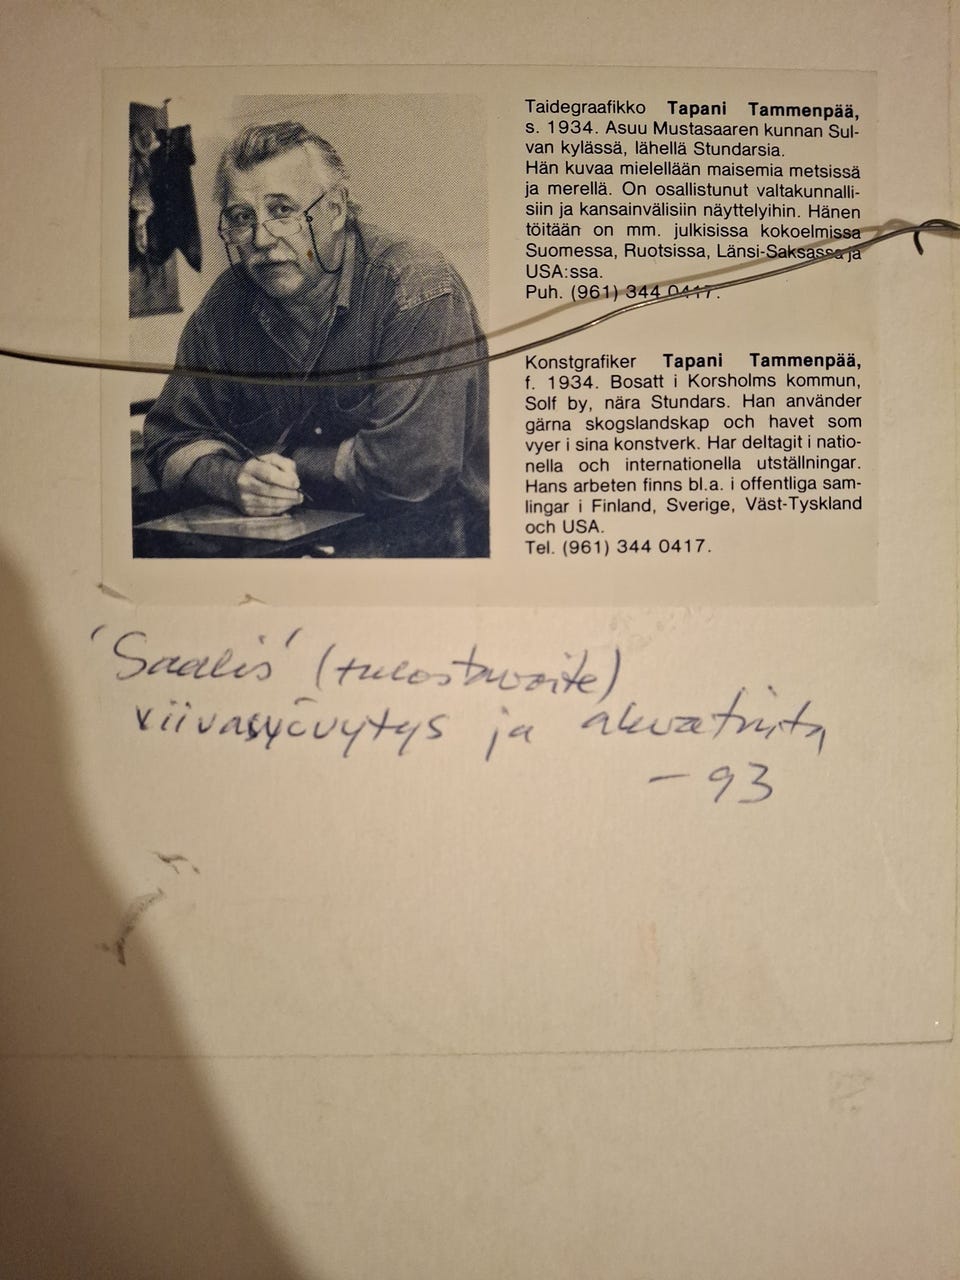 Taidegraafikko Tapani Tammenpää,
s. 1934. Asuu Mustasaaren kunnan Sul-
van kylässä, lähellä Stundarsia.
Hän kuvaa mielellään maisemia metsissä
ja merellä. On osallistunut valtakunnalli-
siin ja kansainvälisiin näyttelyihin. Hänen
töitään on mm. julkisissa kokoelmissa
Suomessa, Ruotsissa, Länsi-Saksassa ja
USA:ssa.
Puh. (961) 344 0417.
Konstgrafiker Tapani Tammenpää,
f. 1934. Bosatt i Korsholms kommun,
Solf by, nära Stundars. Han använder
gärna skogslandskap och havet som
vyer i sina konstverk. Har deltagit i natio-
nella och internationella utställningar.
Hans arbeten finns bl.a. i offentliga sam-
lingar i Finland, Sverige, Väst-Tyskland
och USA.
Tel. (961) 344 0417.
'Saalis' (tulostavoite)
viivasyövytys ja akvatinta
-93